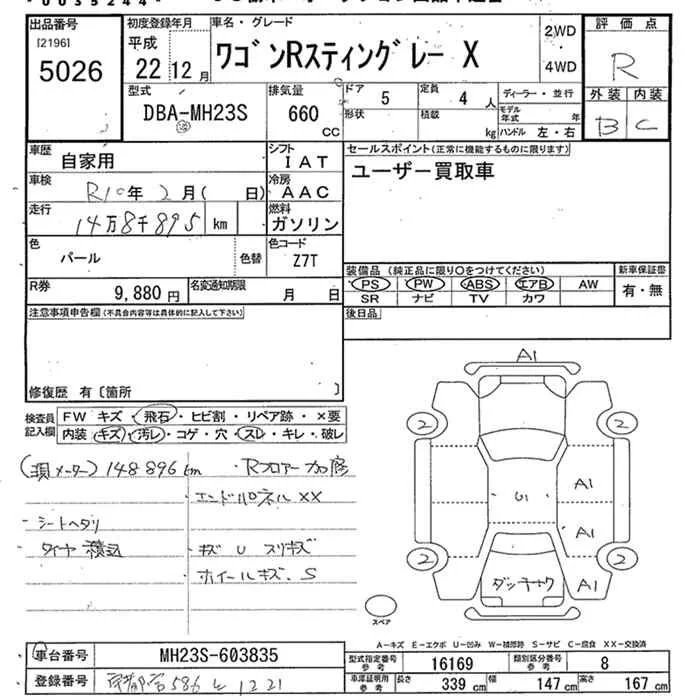 0035244
出品番号 初度登録年月 車名・グレード 評価点
[2196] 平成 2WD
5026 22 12月 ワゴンRスティングレー X 4WD R
型式 排気量 ドア 5 定員 4 人 ディーラー・並行 外装 内装
DBA-MH23S 660 CC 形状 積載 kg モデル年式 年 B C
ハンドル 左・右
車歴 自家用 シフト IAT セールスポイント(正常に機能するものに限ります)
車検 R10年 2月( 日) 冷房 AAC ユーザー買取車
走行 14万8千895 km 燃料 ガソリン
色 パール 色替 色コード Z7T
装備品 (純正品に限り○をつけてください) 新車保証書
R券 9,880円 名変通知期限 月 日 PS PW ABS エアB AW 有・無
SR ナビ TV カワ
注意事項申告欄(不具合内容等は具体的に記入して下さい) 後日品
修復歴 有〔箇所 〕
検査員記入欄 FW キズ・飛石・ヒビ割・リペア跡・×要
内装・キズ・汚レ・コゲ・穴・スレ・キレ・破レ
(現メーター) 148896km ・Rフロアー加修
・エンドパネルXX
・シートヘタリ
タイヤ積込 キズ U スリキズ
ホイールキズ、S
A1
2 2
A1
U1
A1
2 2
ダッシュ A1
スペア
A-キズ E-エクボ U-凹み W-補修跡 S-サビ C-腐食 XX-交換済
車台番号 MH23S-603835 型式指定番号 参考 16169 類別区分番号 参考 8
登録番号 586 1221 車庫証明用 参考 長さ 339cm 幅 147cm 高さ 167cm